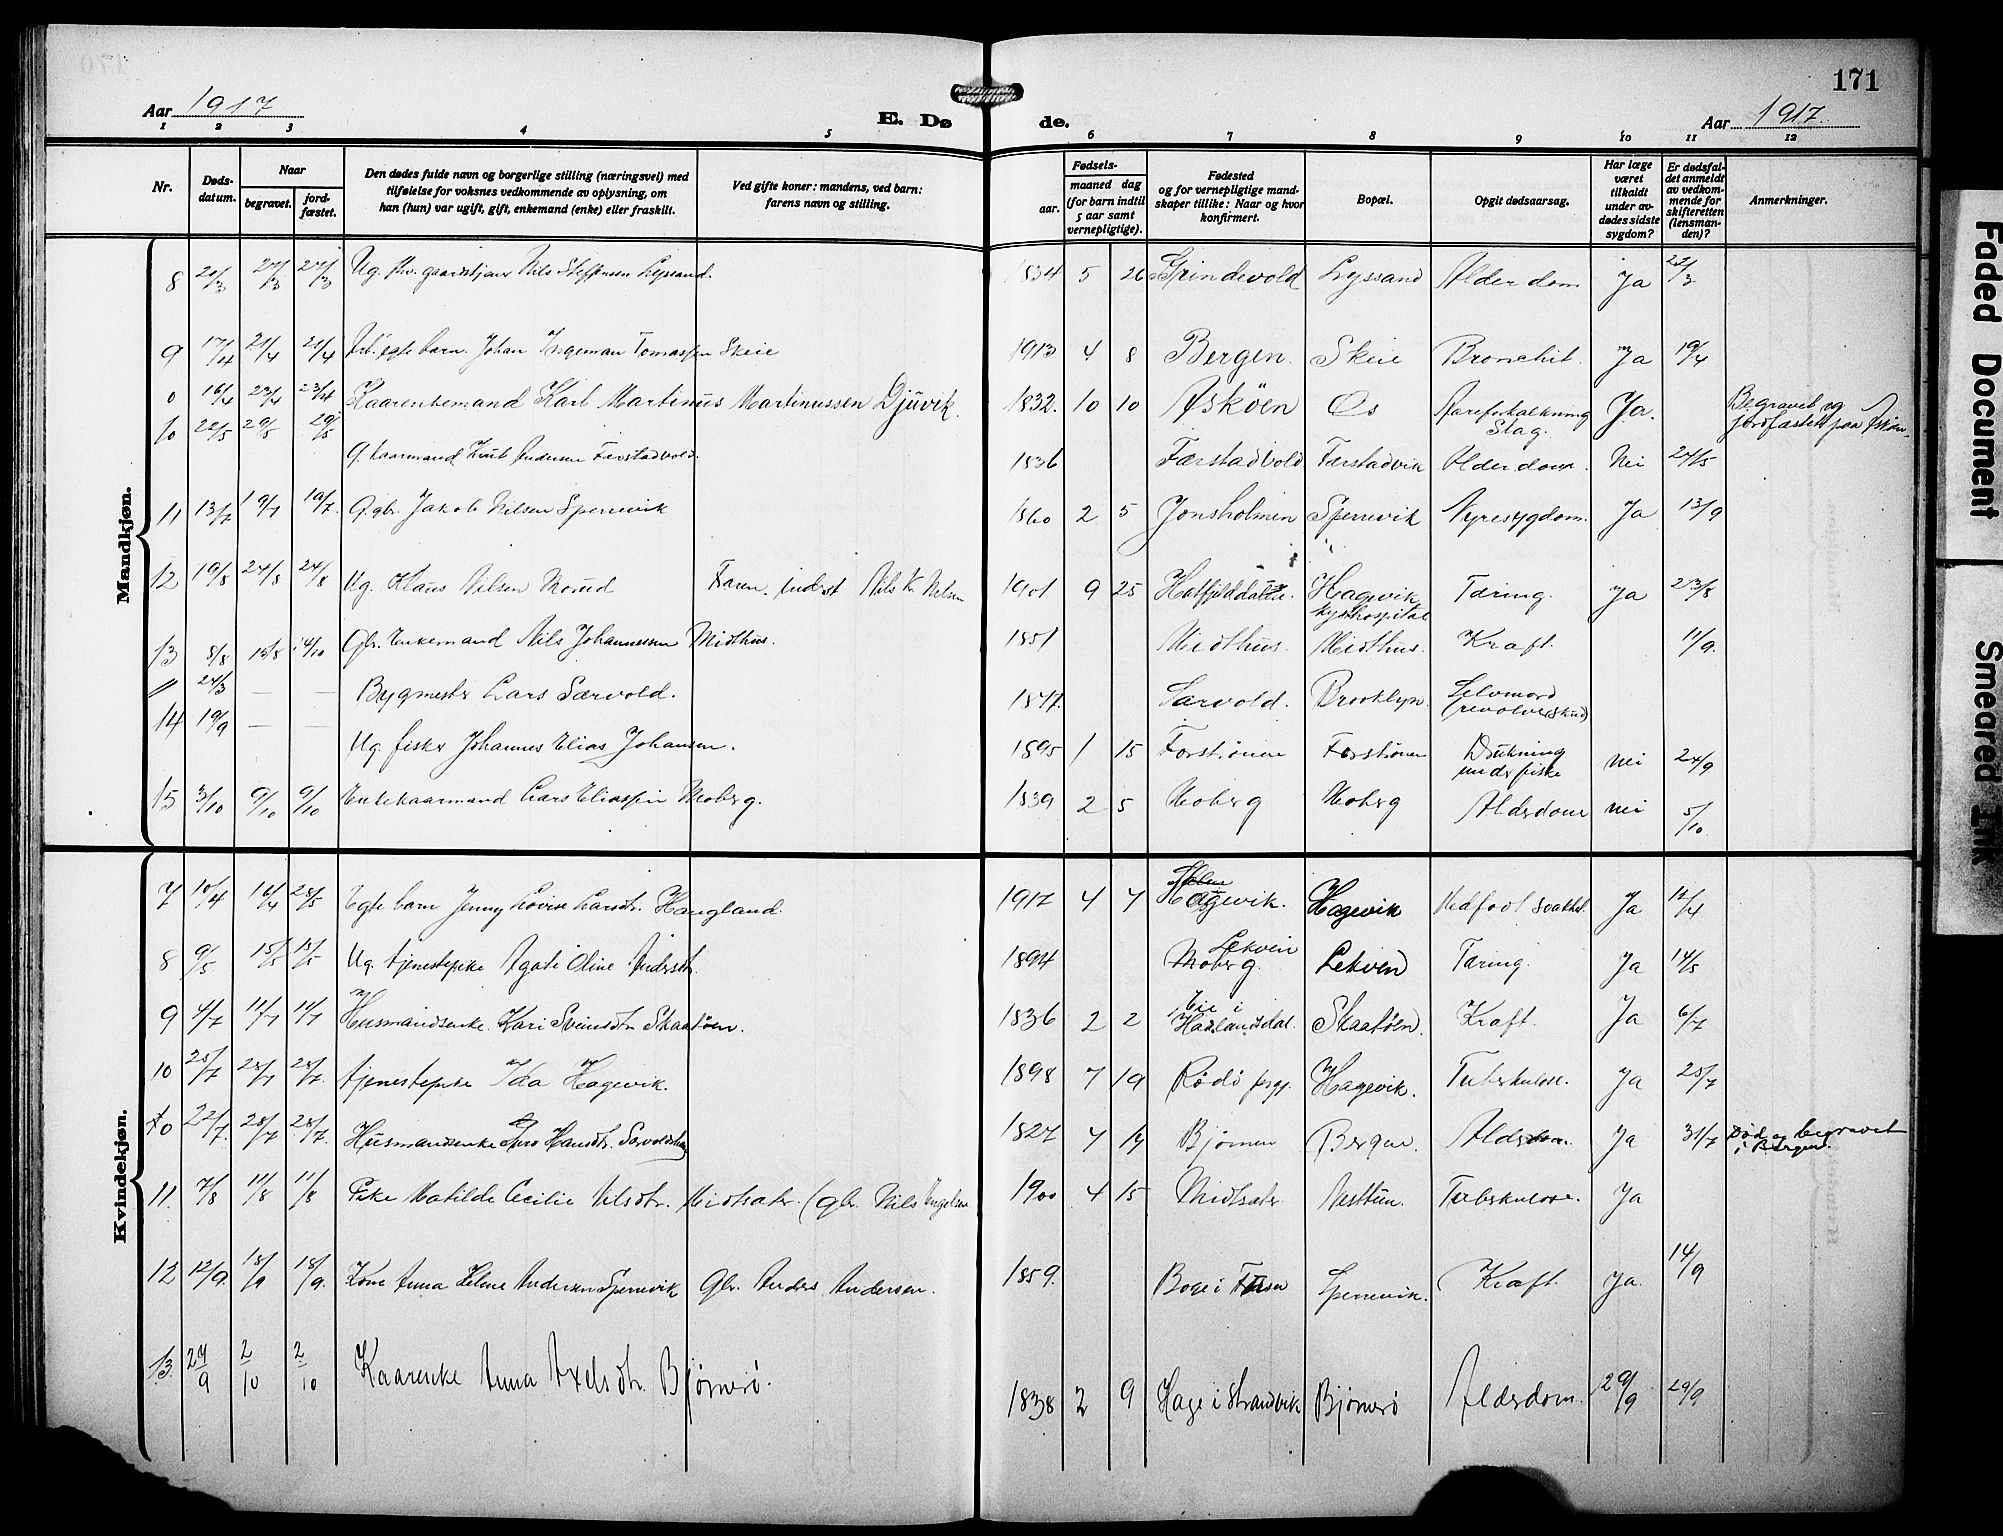 171
Aar 1917
E. Dø de.
Aar 1917.
1 2 3 4 5 6 7 8 9 10 11 12
Nr.
Døds-
datum.
Naar
begravet.
jord-
fæstet.
Den dødes fulde navn og borgerlige stilling (næringsvei) med
tilføielse for voksnes vedkommende av oplysning, om
han (hun) var ugift, gift, enkemand (enke) eller fraskilt.
Ved gifte koner: mandens, ved barn:
farens navn og stilling.
Fødsels-
aar.
maaned dag
(for barn indtil
5 aar samt
vernepligtige).
Fødested
og for vernepligtige mand-
skaper tillike: Naar og hvor
konfirmert.
Bopæl.
Opgit dødsaarsag.
Har læge
været
tilkaldt
under av-
dødes sidste
sygdom?
Er dødsfal-
det anmeldt
av vedkom-
mende for
skifteretten
(lensman-
den)?
Anmerkninger.
Mandkjøn.
8 20/3 27/3 27/3 Ug. fhv. gaardstjener Nils Steffensen Lyssand. 1834 5 26 Grindevold Lyssand Alderdom Ja 22/3
9 17/4 21/4 21/4 Arb. egte barn Johan Ingeman Tomassen Skeie 1913 4 8 Bergen. Skeie Bronchit. Ja 19/4
0 16/4 23/4 23/4 Kaarenkemand Karl Martinus Martinussen Djuvik. 1832. 10 10 Askøen Os Aareforkalkning Slag. Ja. Begravet og jordfæstet paa Askøen
10 22/5 29/5 29/5 G. kaarmand Knut Andersen Færstadvold. 1836 Færstadvold Færstadvik Alderdom. Nei 24/5
11 13/7 19/7 19/7. G. gbr. Jakob Nilsen Sperrevik 1860 2 5 Jonsholmen Sperrevik Nyresygdom. Ja 13/9
12 19/8 24/8 24/8 Ug. Klaus Nilsen Morud Faren. Inderst Nils K. Nilsen 1901 9 25 Hatfjelddalen. Hagevik kysthospital Tæring. Ja 23/8
13 8/8 13/8 14/10 Gbr. Enkemand Nils Johannessen Midthus. 1851 Midthus. Midthus. Kraft. 11/9.
" 24/3 — — Bygmester Lars Særvold. 1847. Særvold. Brooklyn. Selvmord (revolverskud)
14 19/9 — — Ug. fisker Johannes Elias Johansen. 1895 1 15 Forstrønen Forstrønen Drukning under fiske nei 24/9
15 3/10 9/10 9/10 Enkekaarmand Lars Eliassen Moberg. 1839 2 5 Moberg Moberg Alderdom nei 5/10.
Kvindekjøn.
7 10/4 16/4 28/5 Egte barn Jenny Lovise Larsdtr. Haugland. 1917 4 7 Hagevik. Hagevik Medfødt svakhet. Ja 12/4
8 9/5 15/5 15/5 Ug. tjenestepike Agate Oline Andersdtr. 1894 Lekven Moberg. Lekven Tæring. Ja 14/5
9 4/7 11/7 11/7 Husmandsenke Kari Sveinsdtr. Skaatøen. 1836 2 2 Eie i Haalandsdal. Skaatøen. Kraft. Ja 6/7
10 25/7 28/7 28/7. tjenestepike Ida Hagevik. 1898 7 19 Rødø prgj. Hagevik. Tuberkulose. Ja 25/7
0 22/7. 28/7 28/7. Husmandsenke Hansdtr. 1827 4 14 Bjørnen Bergen Alderdom. Ja 31/7 Død og begravet i Bergen.
11. 7/8 11/8 11/8 Pike Matilde Cecilie Nilsdtr. Midtsæter (gbr. Nils Ingelsen 1900 4 15 Midtsæter Nesttun. Tuberkulose. Ja
12 12/9. 18/9 18/9. Kone Anna Helene Andersen Sperrevik Gbr. Anders Andersen. 1859. Boge i Fusa Sperrevik. Kraft. Ja. 14/9
13. 27/9 2/10 2/10 Kaarenke Anna Axelsdtr. Bjørnerø. 1838 2 9 Hage i Strandvik Bjørnerø Alderdom. 29/9 29/9
Faded Document
Smeared Ink